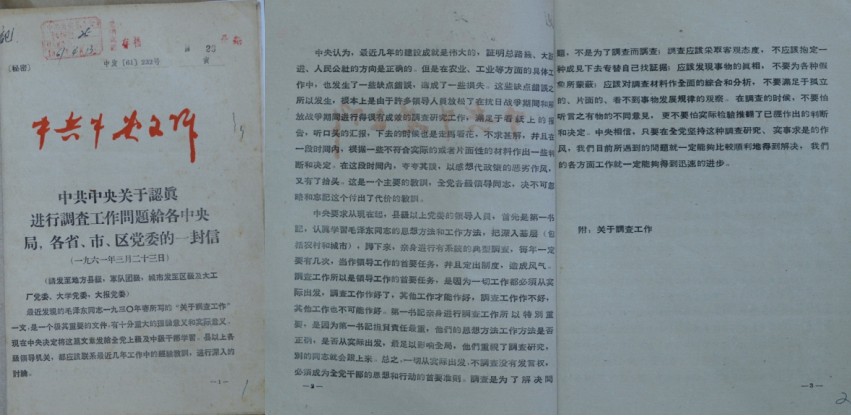 (秘密)
中发(61)233号
中共中央文件
中共中央关于認眞
进行調查工作問題給各中央
局、各省、市、区党委的一封信
(一九六一年三月二十三日)
(請发至地方县級,軍队团級,城市发至区級及大工
厂党委、大学党委、大报党委)
最近发現的毛澤东同志一九三〇年春所写的“关于調查工作”
一文,是一个极其重要的文件,有十分重大的理論意义和实际意义。
現在中央决定将这篇文章发給全党上級及中級干部学习。县以上各
級領导机关,都应該联系最近几年工作中的經驗教訓,进行深入的
討論。
—1—
中央认为,最近几年的建設成就是伟大的,証明总路綫、大跃
进、人民公社的方向是正确的。但是在农业、工业等方面的具体工
作中,也发生了一些缺点錯誤,造成了一些損失。这些缺点錯誤之
所以发生,根本上是由于許多領导人員放松了在抗日战爭期間和解
放战爭期間进行得很有成效的調查研究工作,滿足于看紙上的报
告,听口头的汇报,下去的时候也是走馬看花,不求甚解,并且在
一段时間內,根据一些不符合实际的或者片面性的材料作出一些判
断和决定。在这段时間內,夸夸其談,以感想代政策的恶劣作风,
又有了抬头。这是一个主要的教訓,全党各級領导同志,决不可忽
略和忘記这个付出了代价的教訓。
中央要求从現在起,县級以上党委的領导人員,首先是第一书
記,认眞学习毛澤东同志的思想方法和工作方法,把深入基层(包
括农村和城市),蹲下来,亲身进行有系統的典型調查,每年一定
要有几次,当作領导工作的首要任务,并且定出制度,造成风气。
調查工作所以是領导工作的首要任务,是因为一切工作都必須从实
际出发,調查工作作好了,其他工作才能作好,調查工作作不好,
其他工作也不可能作好。第一书記亲身进行調查工作所以特別重
要,是因为第一书記担負責任最重,他們的思想方法工作方法是否
正确,是否从实际出发,最足以影响全局,他們重視了調查研究,
別的同志就会跟上来。总之,一切从实际出发,不調查沒有发言权,
必須成为全党干部的思想和行动的首要准則。調查是为了解决問
—2—
題,不是为了調查而調查;調查应該采取客观态度,不应該抱定一
种成見下去专替自己找証据;应該发現事物的眞相,不要为各种假
象所蒙蔽;应該对調查材料作全面的綜合和分析,不要滿足于孤立
的、片面的、看不到事物发展規律的观察。在調查的时候,不要怕
听言之有物的不同意見,更不要怕实际检驗推翻了已經作出的判断
和决定。中央相信,只要在全党坚持这种調查研究、实事求是的作
风,我們目前所遇到的問題就一定能够比較順利地得到解决,我們
的各方面工作就一定能够得到迅速的进步。
附:关于調查工作
—3—
2